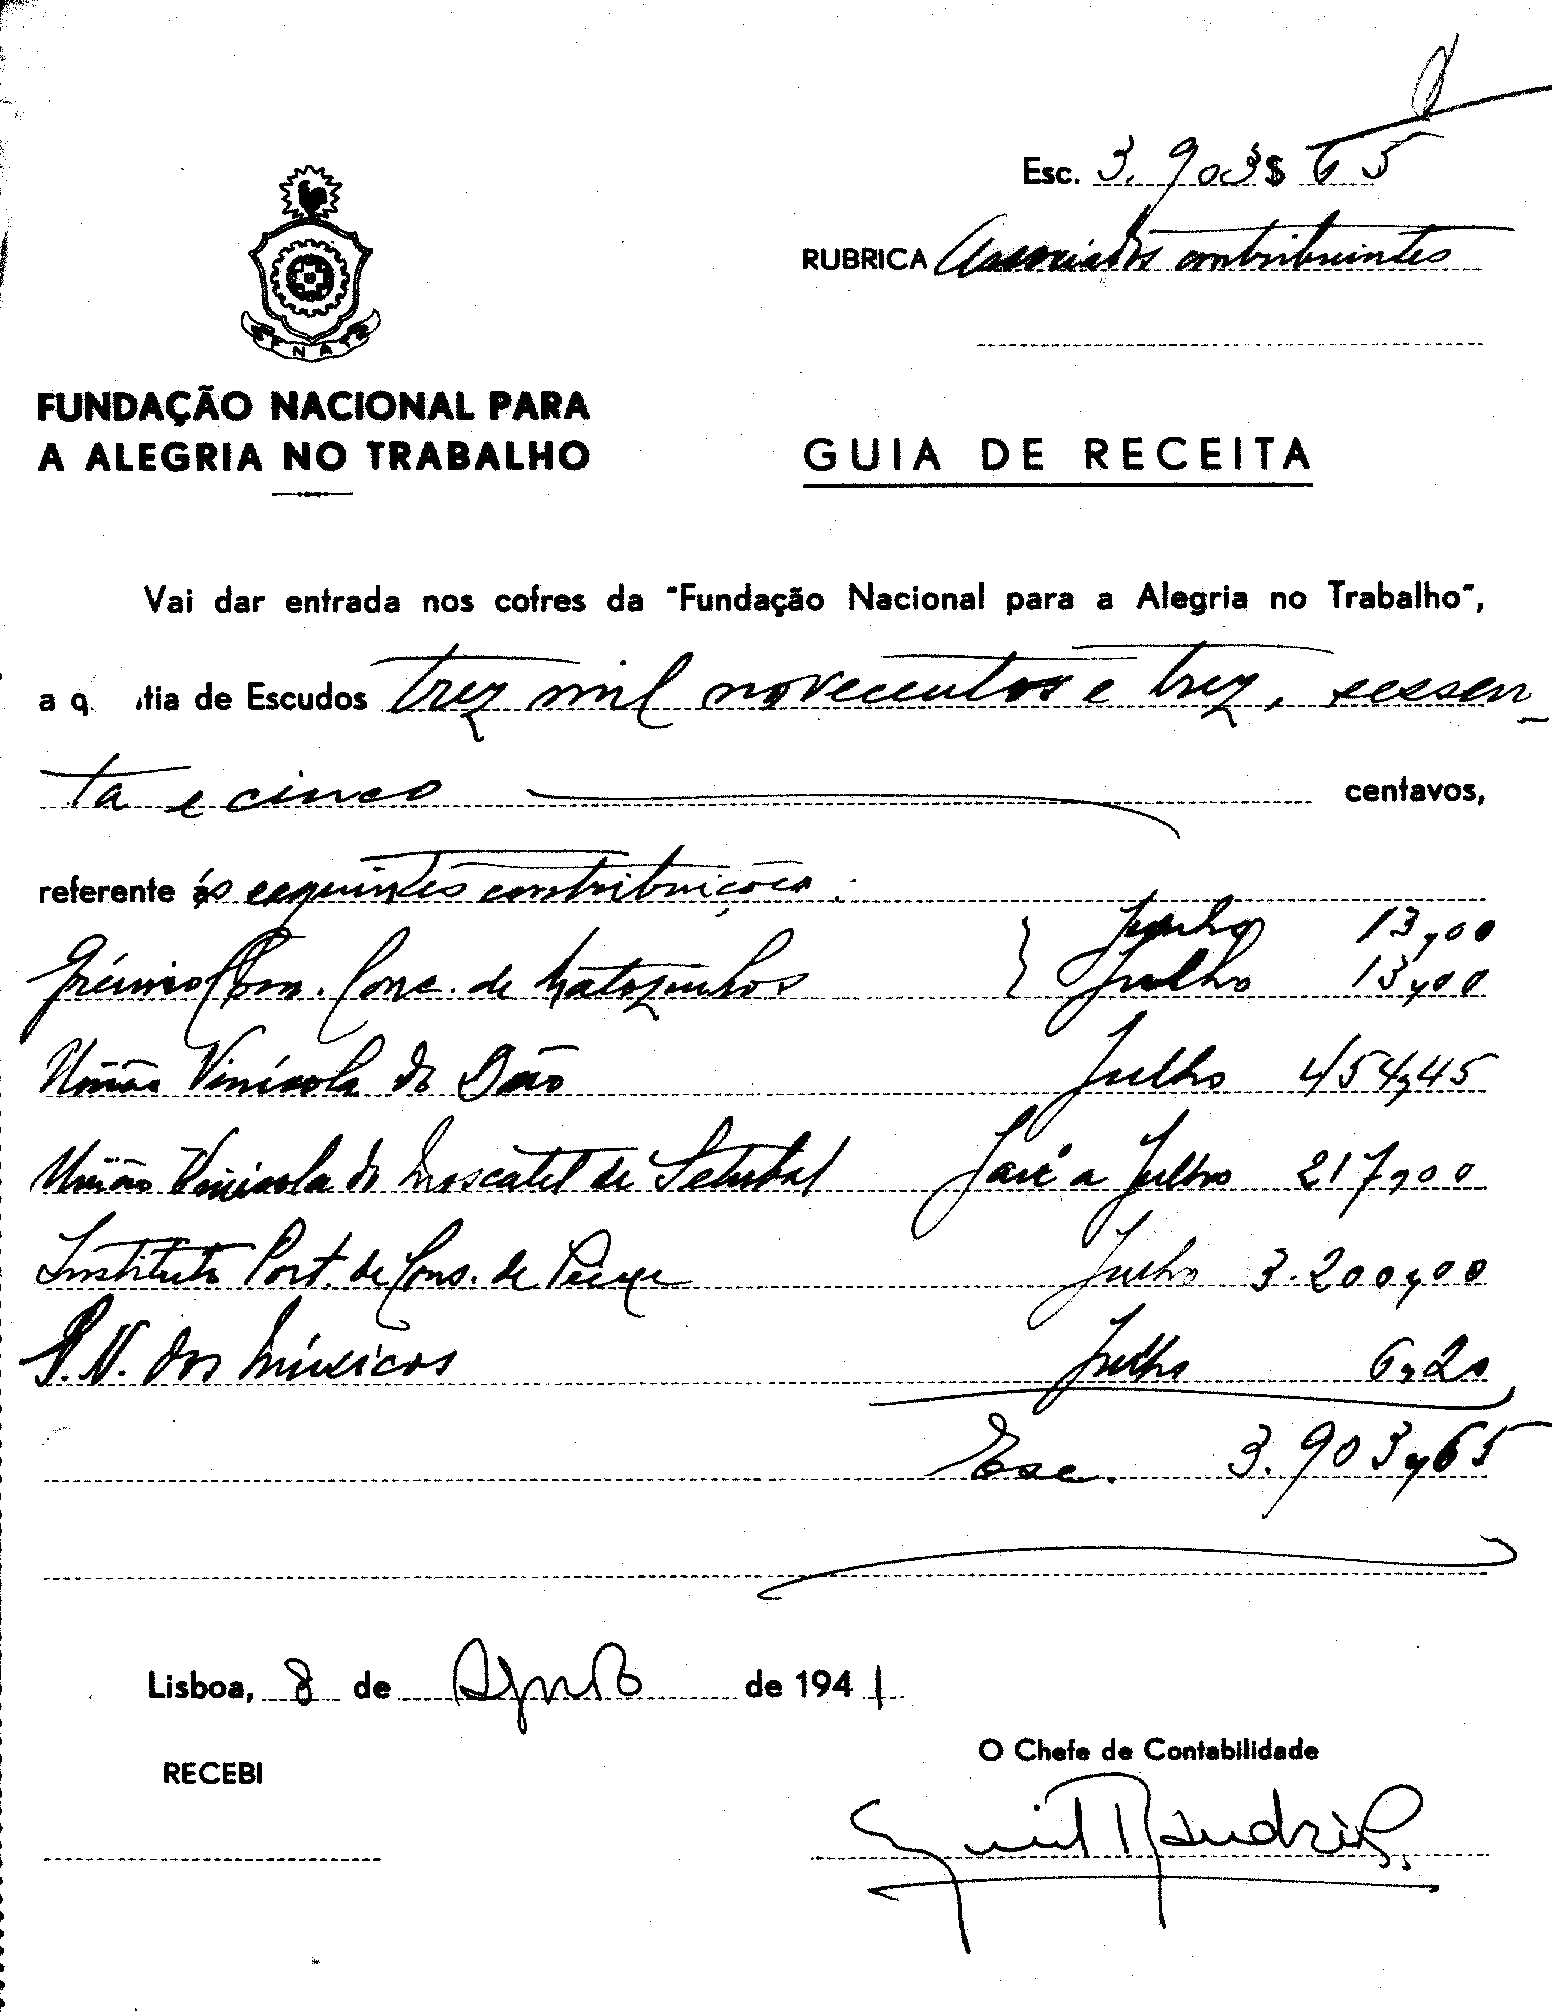 Esc. 3.903$65
RUBRICA Associados contribuintes
FENAT
FUNDAÇÃO NACIONAL PARA
A ALEGRIA NO TRABALHO
GUIA DE RECEITA
Vai dar entrada nos cofres da "Fundação Nacional para a Alegria no Trabalho",
a q tia de Escudos trez mil novecentos e trez, sessen-
ta e cinco centavos,
referente ás seguintes contribuições:
Junho 13,00
Grémio Com. Conc. de Matozinhos } Julho 13,00
União Vinícola do Dão Julho 454,45
União Vinícola do Moscatel de Setubal Jan.º a Julho 217,00
Instituto Port. de Cons. de Peixe Julho 3.200,00
S.N. dos Músicos Julho 6,20
Esc. 3.903,65
Lisboa, 8 de Agosto de 1941
RECEBI
O Chefe de Contabilidade